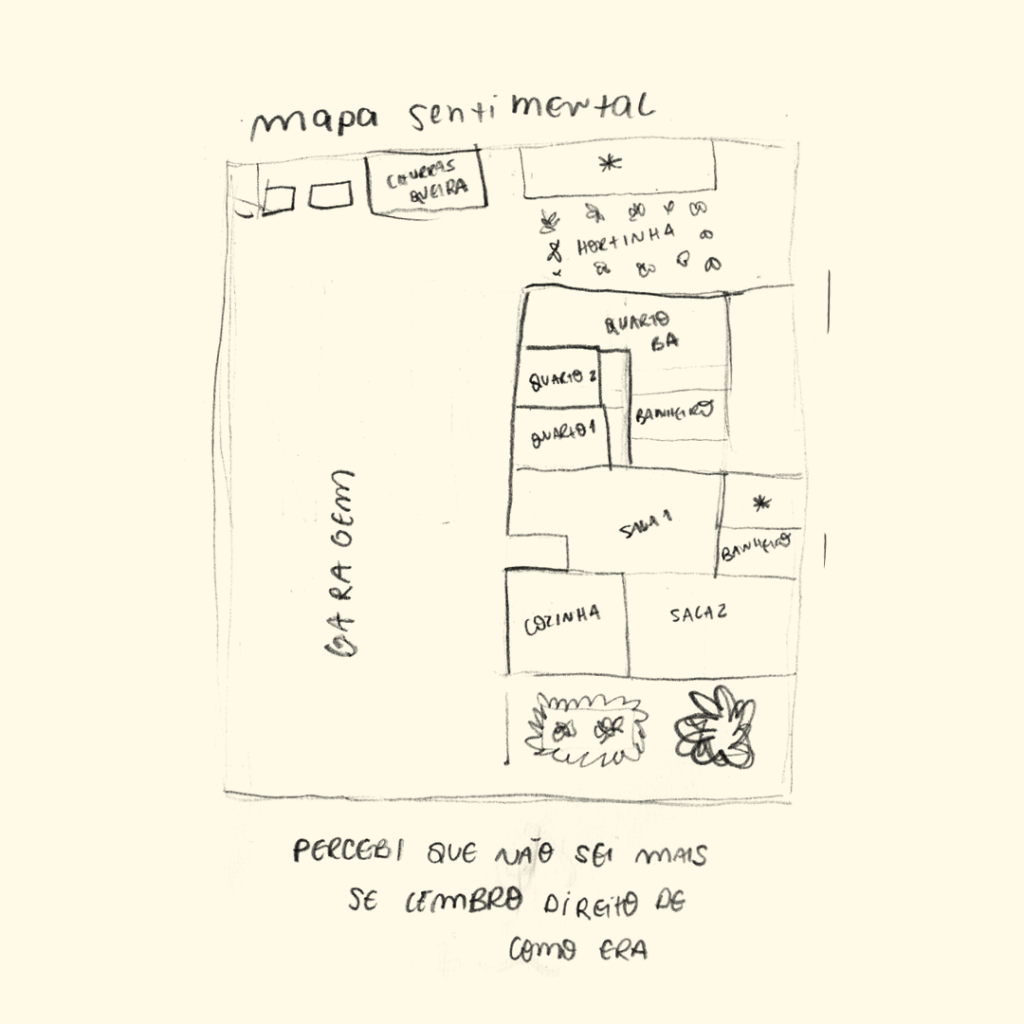 mapa sentimental
CHURRAS
QUEIRA
*
HORTINHA
QUARTO
BA
QUARTO 2
BANHEIRO
QUARTO 1
GARAGEM
SALA 1
*
BANHEIRO
COZINHA
SALA 2
PERCEBI QUE NÃO SEI MAIS
SE LEMBRO DIREITO DE
COMO ERA